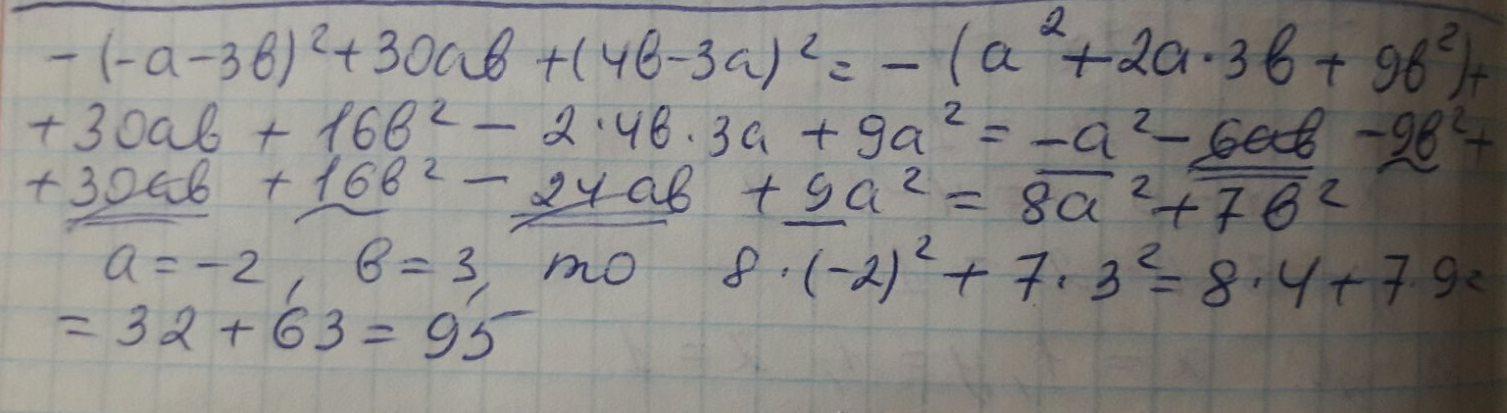 -(-а-3в)²+30ав+(4в-3а)²=-(а²+2а·3в+9в²)+
+30ав+16в²-2·4в·3а+9а²=-а²-6ав-9в²+
+30ав+16в²-24ав+9а²=8а²+7в²
а=-2, в=3, то 8·(-2)²+7·3²=8·4+7·9=
=32+63=95